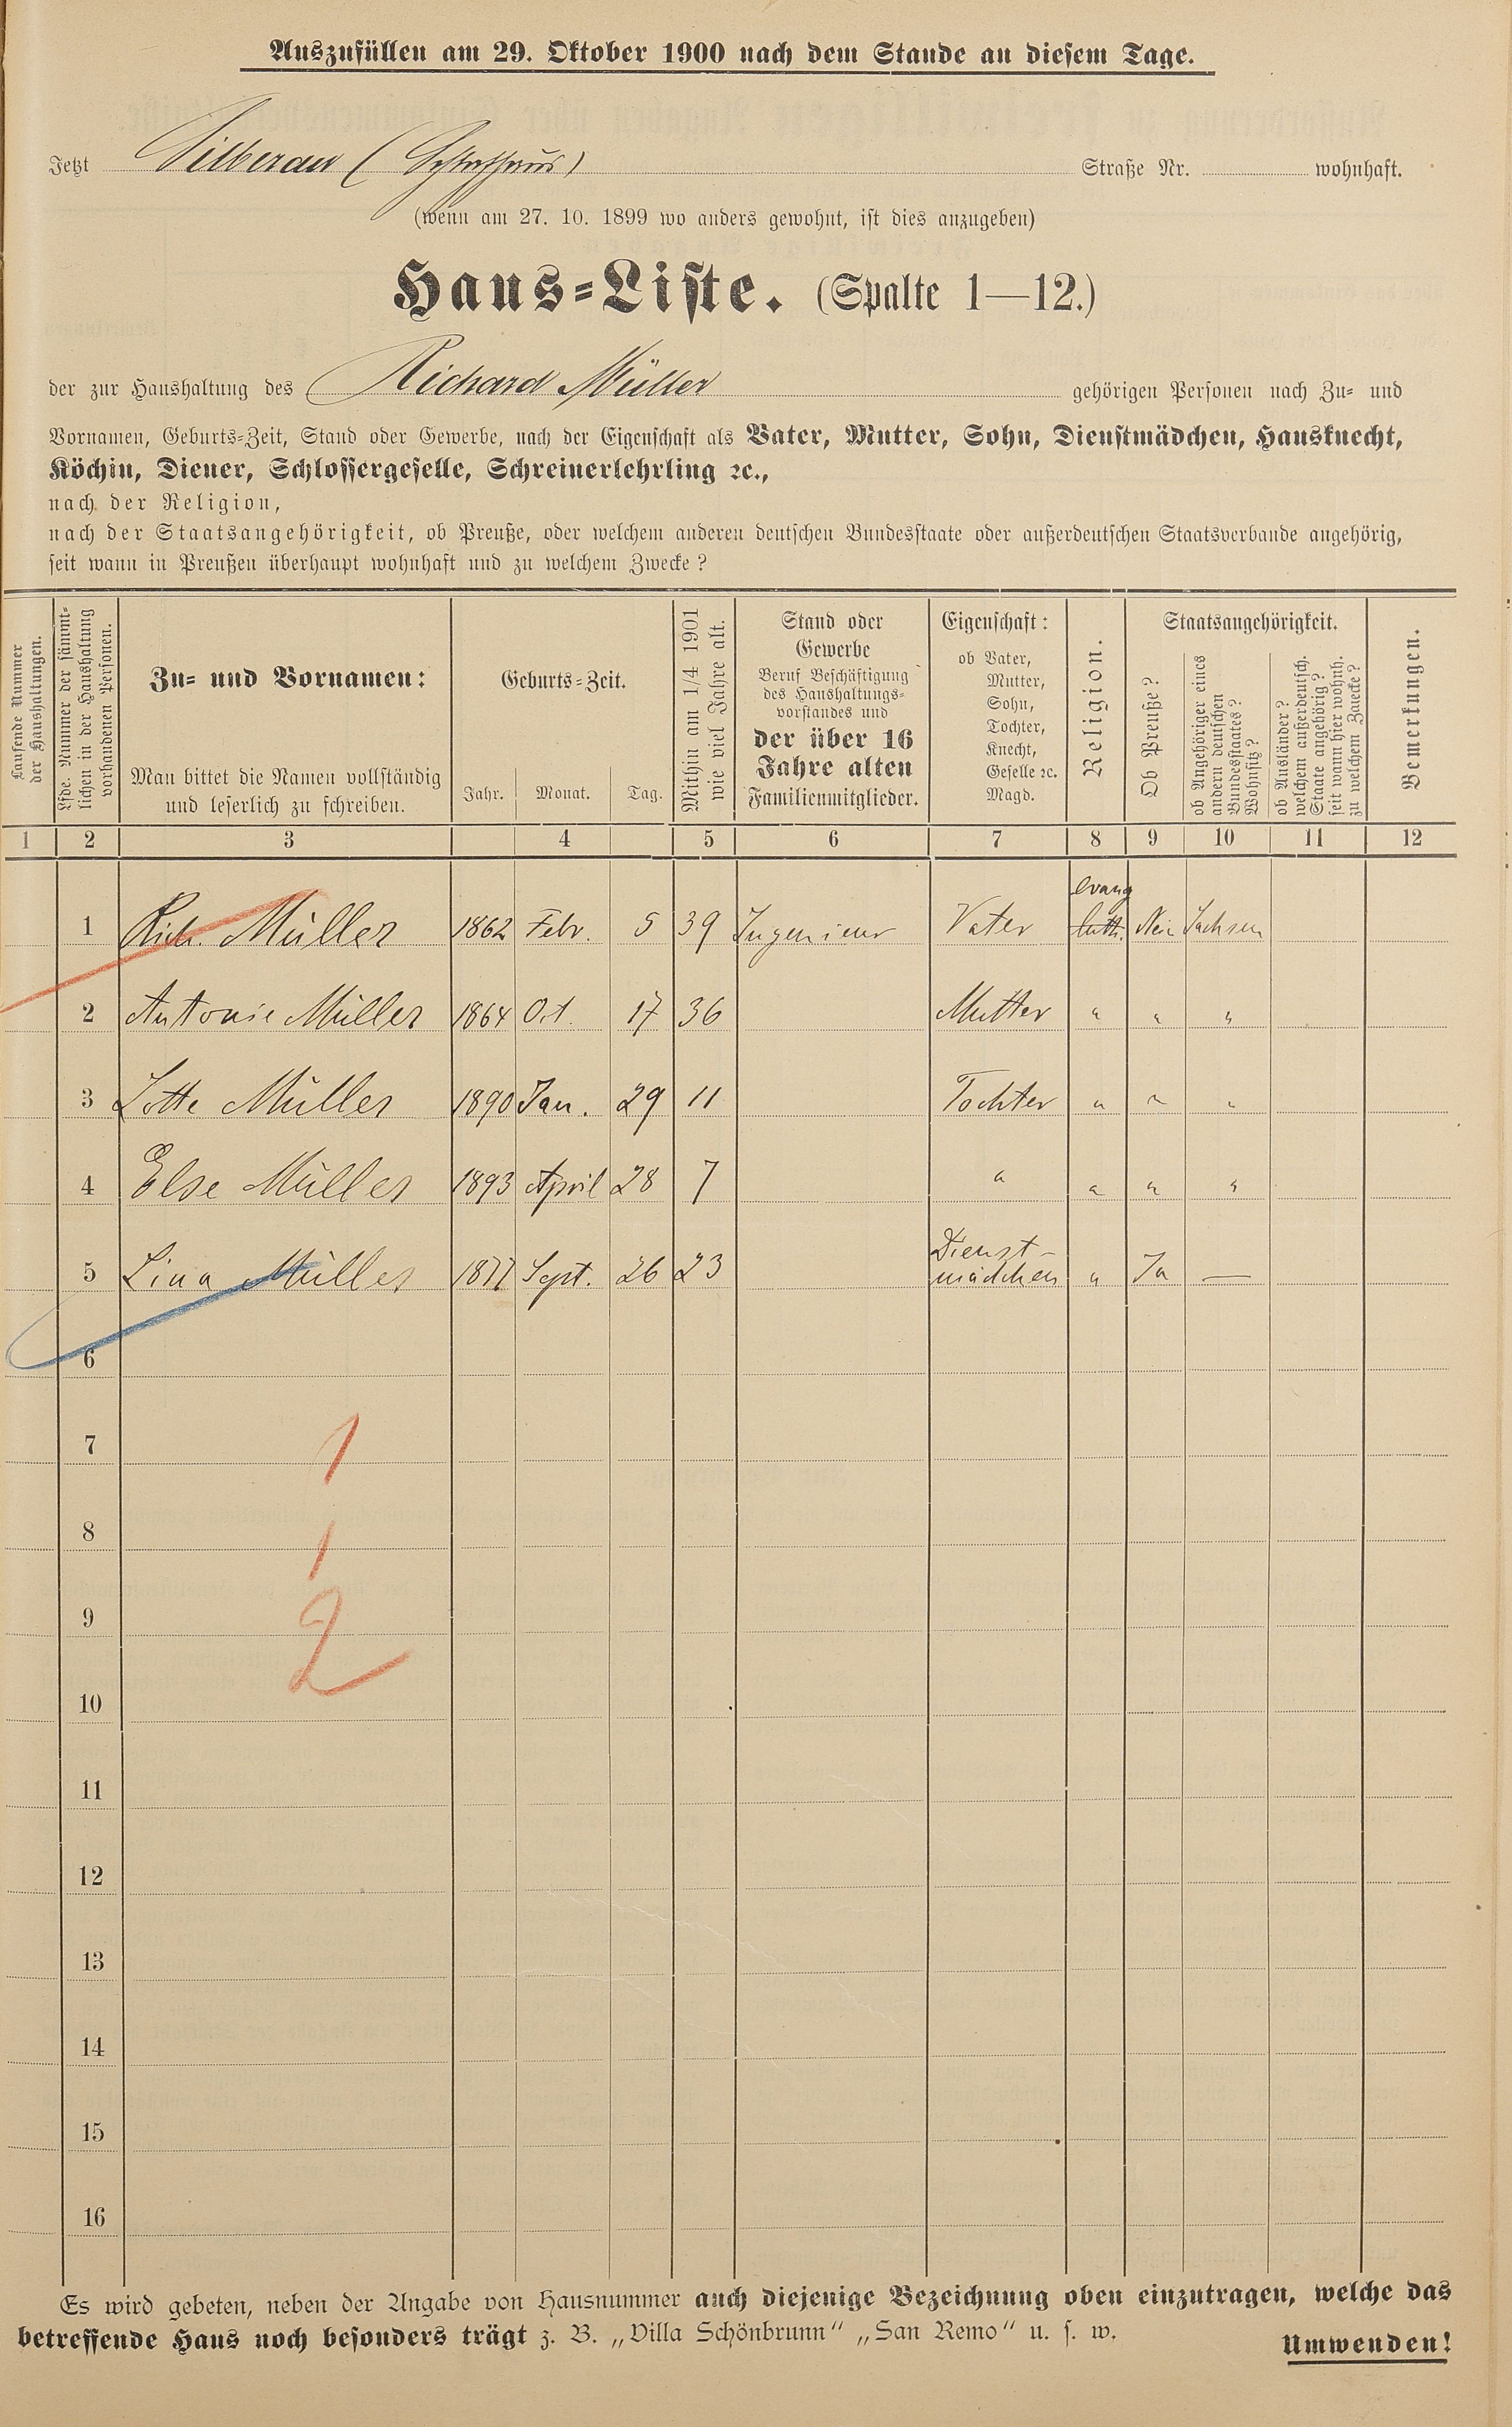 Auszufüllen am 29. Oktober 1900 nach dem Stande an diesem Tage.
Jetzt Silberau ( ) Straße Nr. wohnhaft.
(wenn am 27. 10. 1899 wo anders gewohnt, ist dies anzugeben)
Haus-Liste. (Spalte 1—12.)
der zur Haushaltung des Richard Müller gehörigen Personen nach Zu- und
Vornamen, Geburts-Zeit, Stand oder Gewerbe, nach der Eigenschaft als Vater, Mutter, Sohn, Dienstmädchen, Hausknecht,
Köchin, Diener, Schlossergeselle, Schreinerlehrling ꝛc.,
nach der Religion,
nach der Staatsangehörigkeit, ob Preuße, oder welchem anderen deutschen Bundesstaate oder außerdeutschen Staatsverbande angehörig,
seit wann in Preußen überhaupt wohnhaft und zu welchem Zwecke?
Laufende Nummer
der Haushaltungen.
Lfde. Nummer der sämmt-
lichen in der Haushaltung
vorhandenen Personen.
Zu- und Vornamen:
Man bittet die Namen vollständig
und leserlich zu schreiben.
Geburts-Zeit.
Jahr. Monat. Tag.
Mithin am 1/4 1901
wie viel Jahre alt.
Stand oder
Gewerbe
Beruf Beschäftigung
des Haushaltungs-
vorstandes und
der über 16
Jahre alten
Familienmitglieder.
Eigenschaft:
ob Vater,
Mutter,
Sohn,
Tochter,
Knecht,
Geselle ꝛc.
Magd.
Religion.
Staatsangehörigkeit.
Ob Preuße?
ob Angehöriger eines
andern deutschen
Bundesstaates?
Wohnsitz?
ob Ausländer?
welchem außerdeutsch.
Staate angehörig?
seit wann hier wohnh.
zu welchem Zwecke?
Bemerkungen.
1 2 3 4 5 6 7 8 9 10 11 12
evang
1 Rich. Müller 1862 Febr. 5 39 Ingenieur Vater luth. Nein Sachsen
2 Antonie Müller 1864 Oct. 17 36 Mutter " " "
3 Lotte Müller 1890 Jan. 29 11 Tochter " " "
4 Else Müller 1893 April 28 7 " " " "
5 Lina Müller 1877 Sept. 26 23 Dienst-
mädchen " Ja —
6
7
1
8
1
9
2
10
11
12
13
14
15
16
Es wird gebeten, neben der Angabe von Hausnummer auch diejenige Bezeichnung oben einzutragen, welche das
betreffende Haus noch besonders trägt z. B. „Villa Schönbrunn“ „San Remo“ u. s. w.
Umwenden!